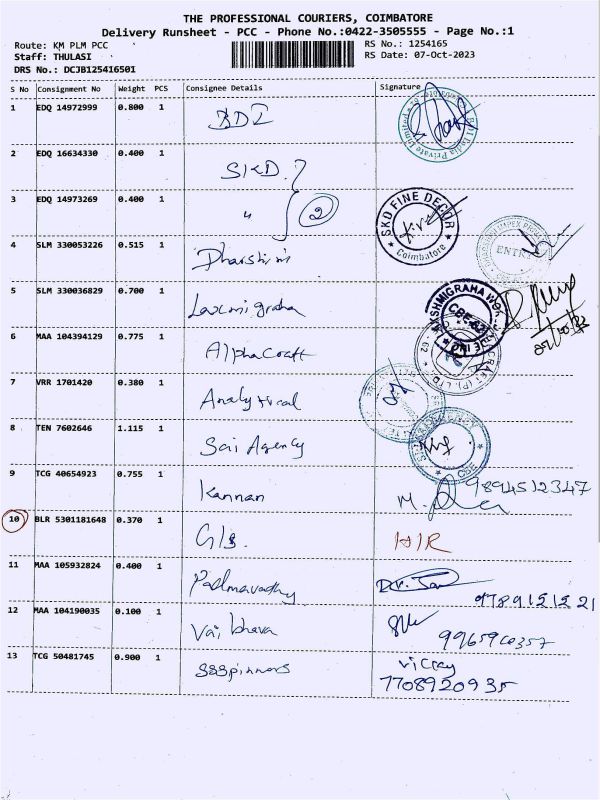 THE PROFESSIONAL COURIERS, COIMBATORE
Delivery Runsheet - PCC - Phone No.:0422-3505555 - Page No.:1
Route: KM PLM PCC
RS No.: 1254165
Staff: THULASI
RS Date: 07-Oct-2023
DRS No.: DCJB125416501
S No Consignment No Weight PCS Consignee Details Signature
1 EDQ 14972999 0.800 1 BDI
2 EDQ 16634330 0.400 1 SKD.
3 EDQ 14973269 0.400 1 " 2 SKD FINE DECOR Coimbatore
4 SLM 330053226 0.515 1 Dharshini ENTRY
5 SLM 330036829 0.700 1 Laxmi graha
6 MAA 104394129 0.775 1 Alphacraft
7 VRR 1701420 0.380 1 Analytical
8 TEN 7602646 1.115 1 Sai Agency
9 TCG 40654923 0.755 1 Kannan 9894512347
10 BLR 5301181648 0.370 1 G/s. HIR
11 MAA 105932824 0.400 1 Padmavadhy
12 MAA 104190035 0.100 1 Vaibhava 9965920357
13 TCG 50481745 0.900 1 SSSpinners vicky
7708920935